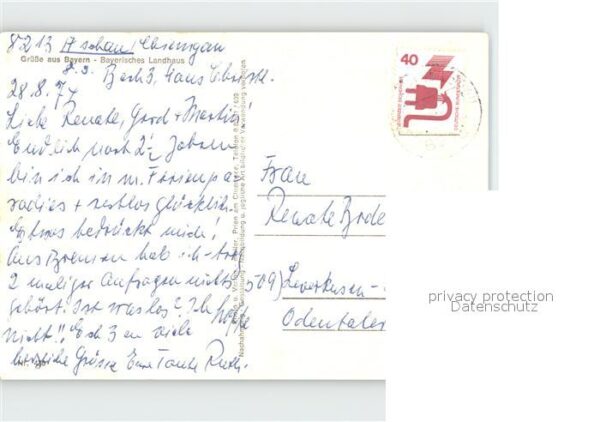 8213 Aschau/Chiemgau
Grüße aus Bayern - Bayerisches Landhaus
z. Z. Bach 3, Haus Christl.
28.8.74
Liebe Renate, Gerd + Martin!
Endlich nach 2½ Jahren
bin ich in m. Ferienpa-
radies + restlos glücklich.
Etwas bedrückt mich!
Aus Bremen hab ich trotz
2 maliger Anfragen nichts
gehört. Ist was los? Ich hoffe
nicht!! Euch 3en viele
herzliche Grüsse Eure Tante Ruth.
40
Frau
Renate Brode
509) Leverkusen -
Odentaler
privacy protection
Datenschutz